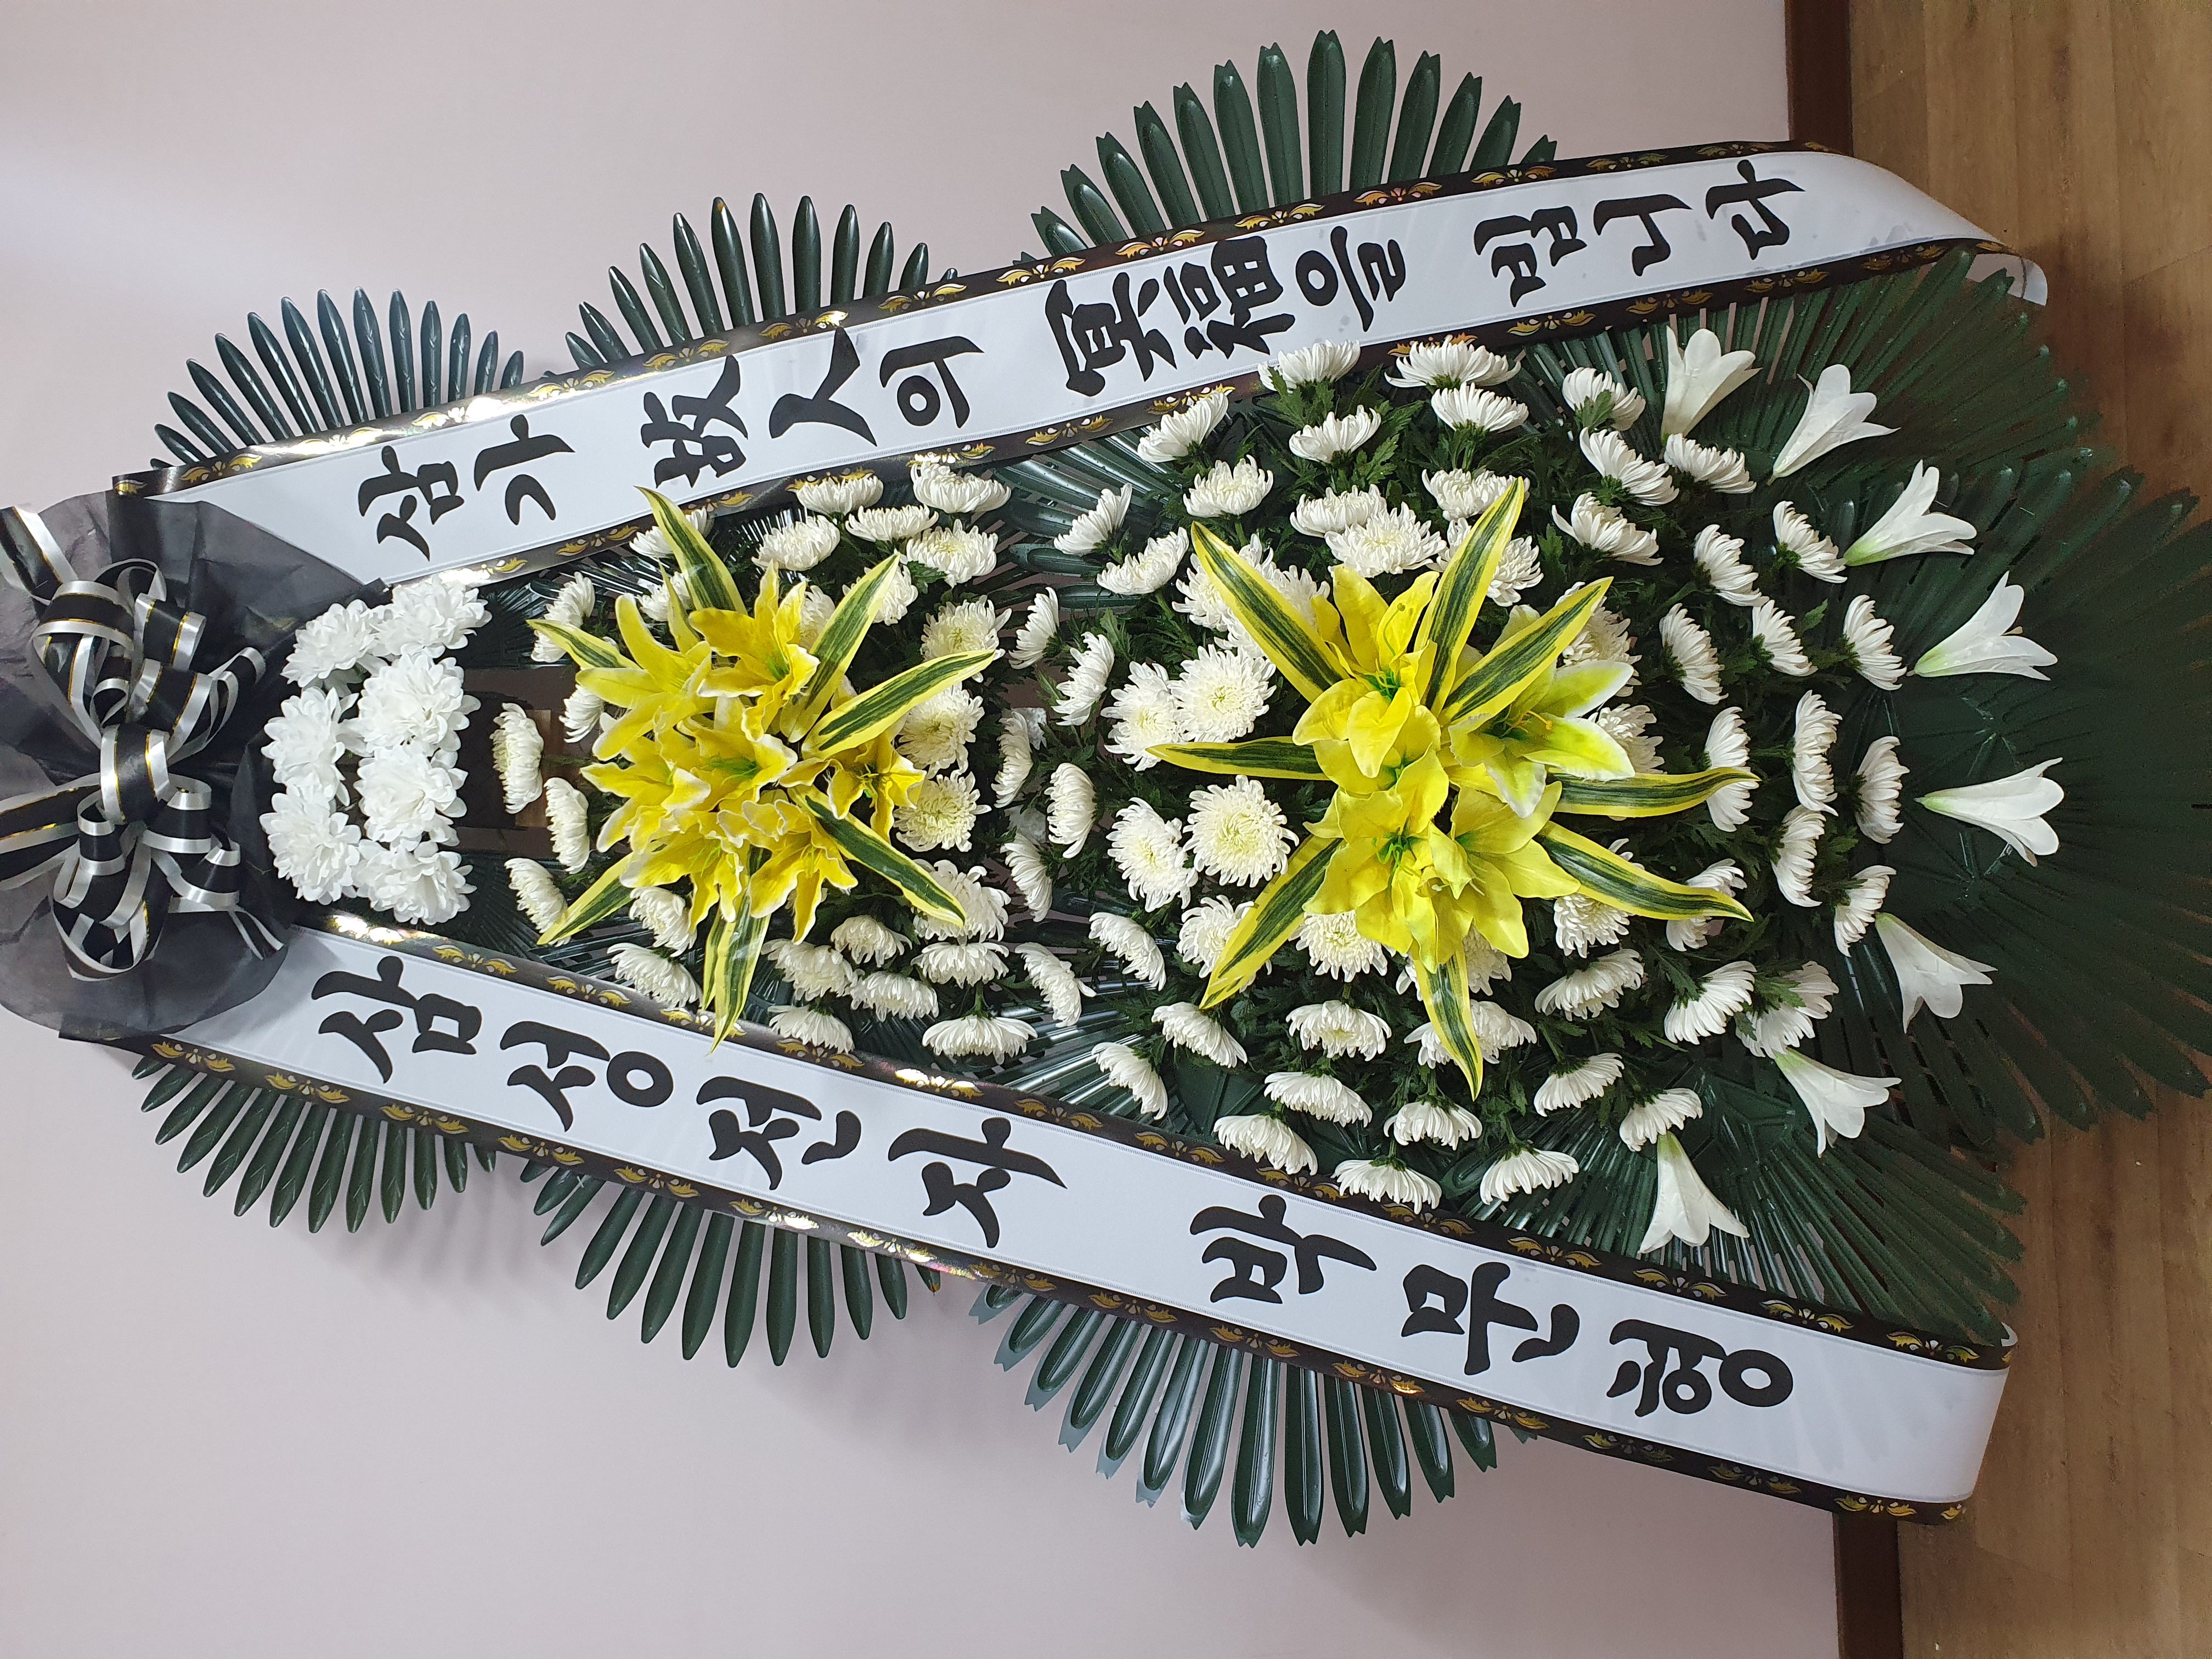 삼가 故人의 冥福을 빕니다
삼성전자 박문형